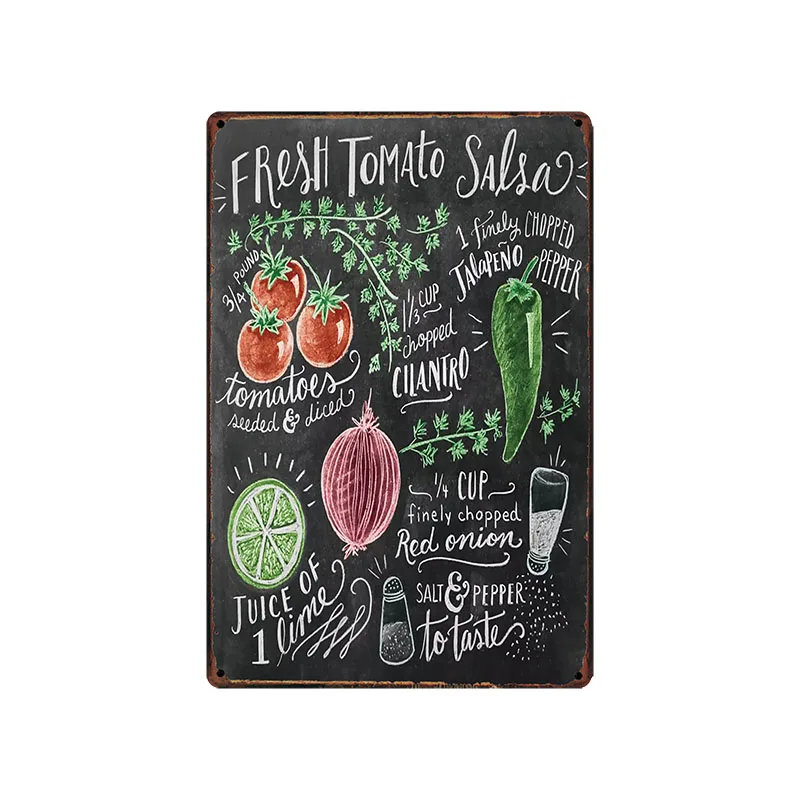 FRESH TOMATO Salsa
1 finely CHOPPED
JALAPEÑO PEPPER
3/4 POUND
tomatoes
seeded & diced
1/3 CUP
chopped
CILANTRO
1/4 CUP
finely chopped
Red onion
JUICE OF
1 lime
SALT & PEPPER
to taste